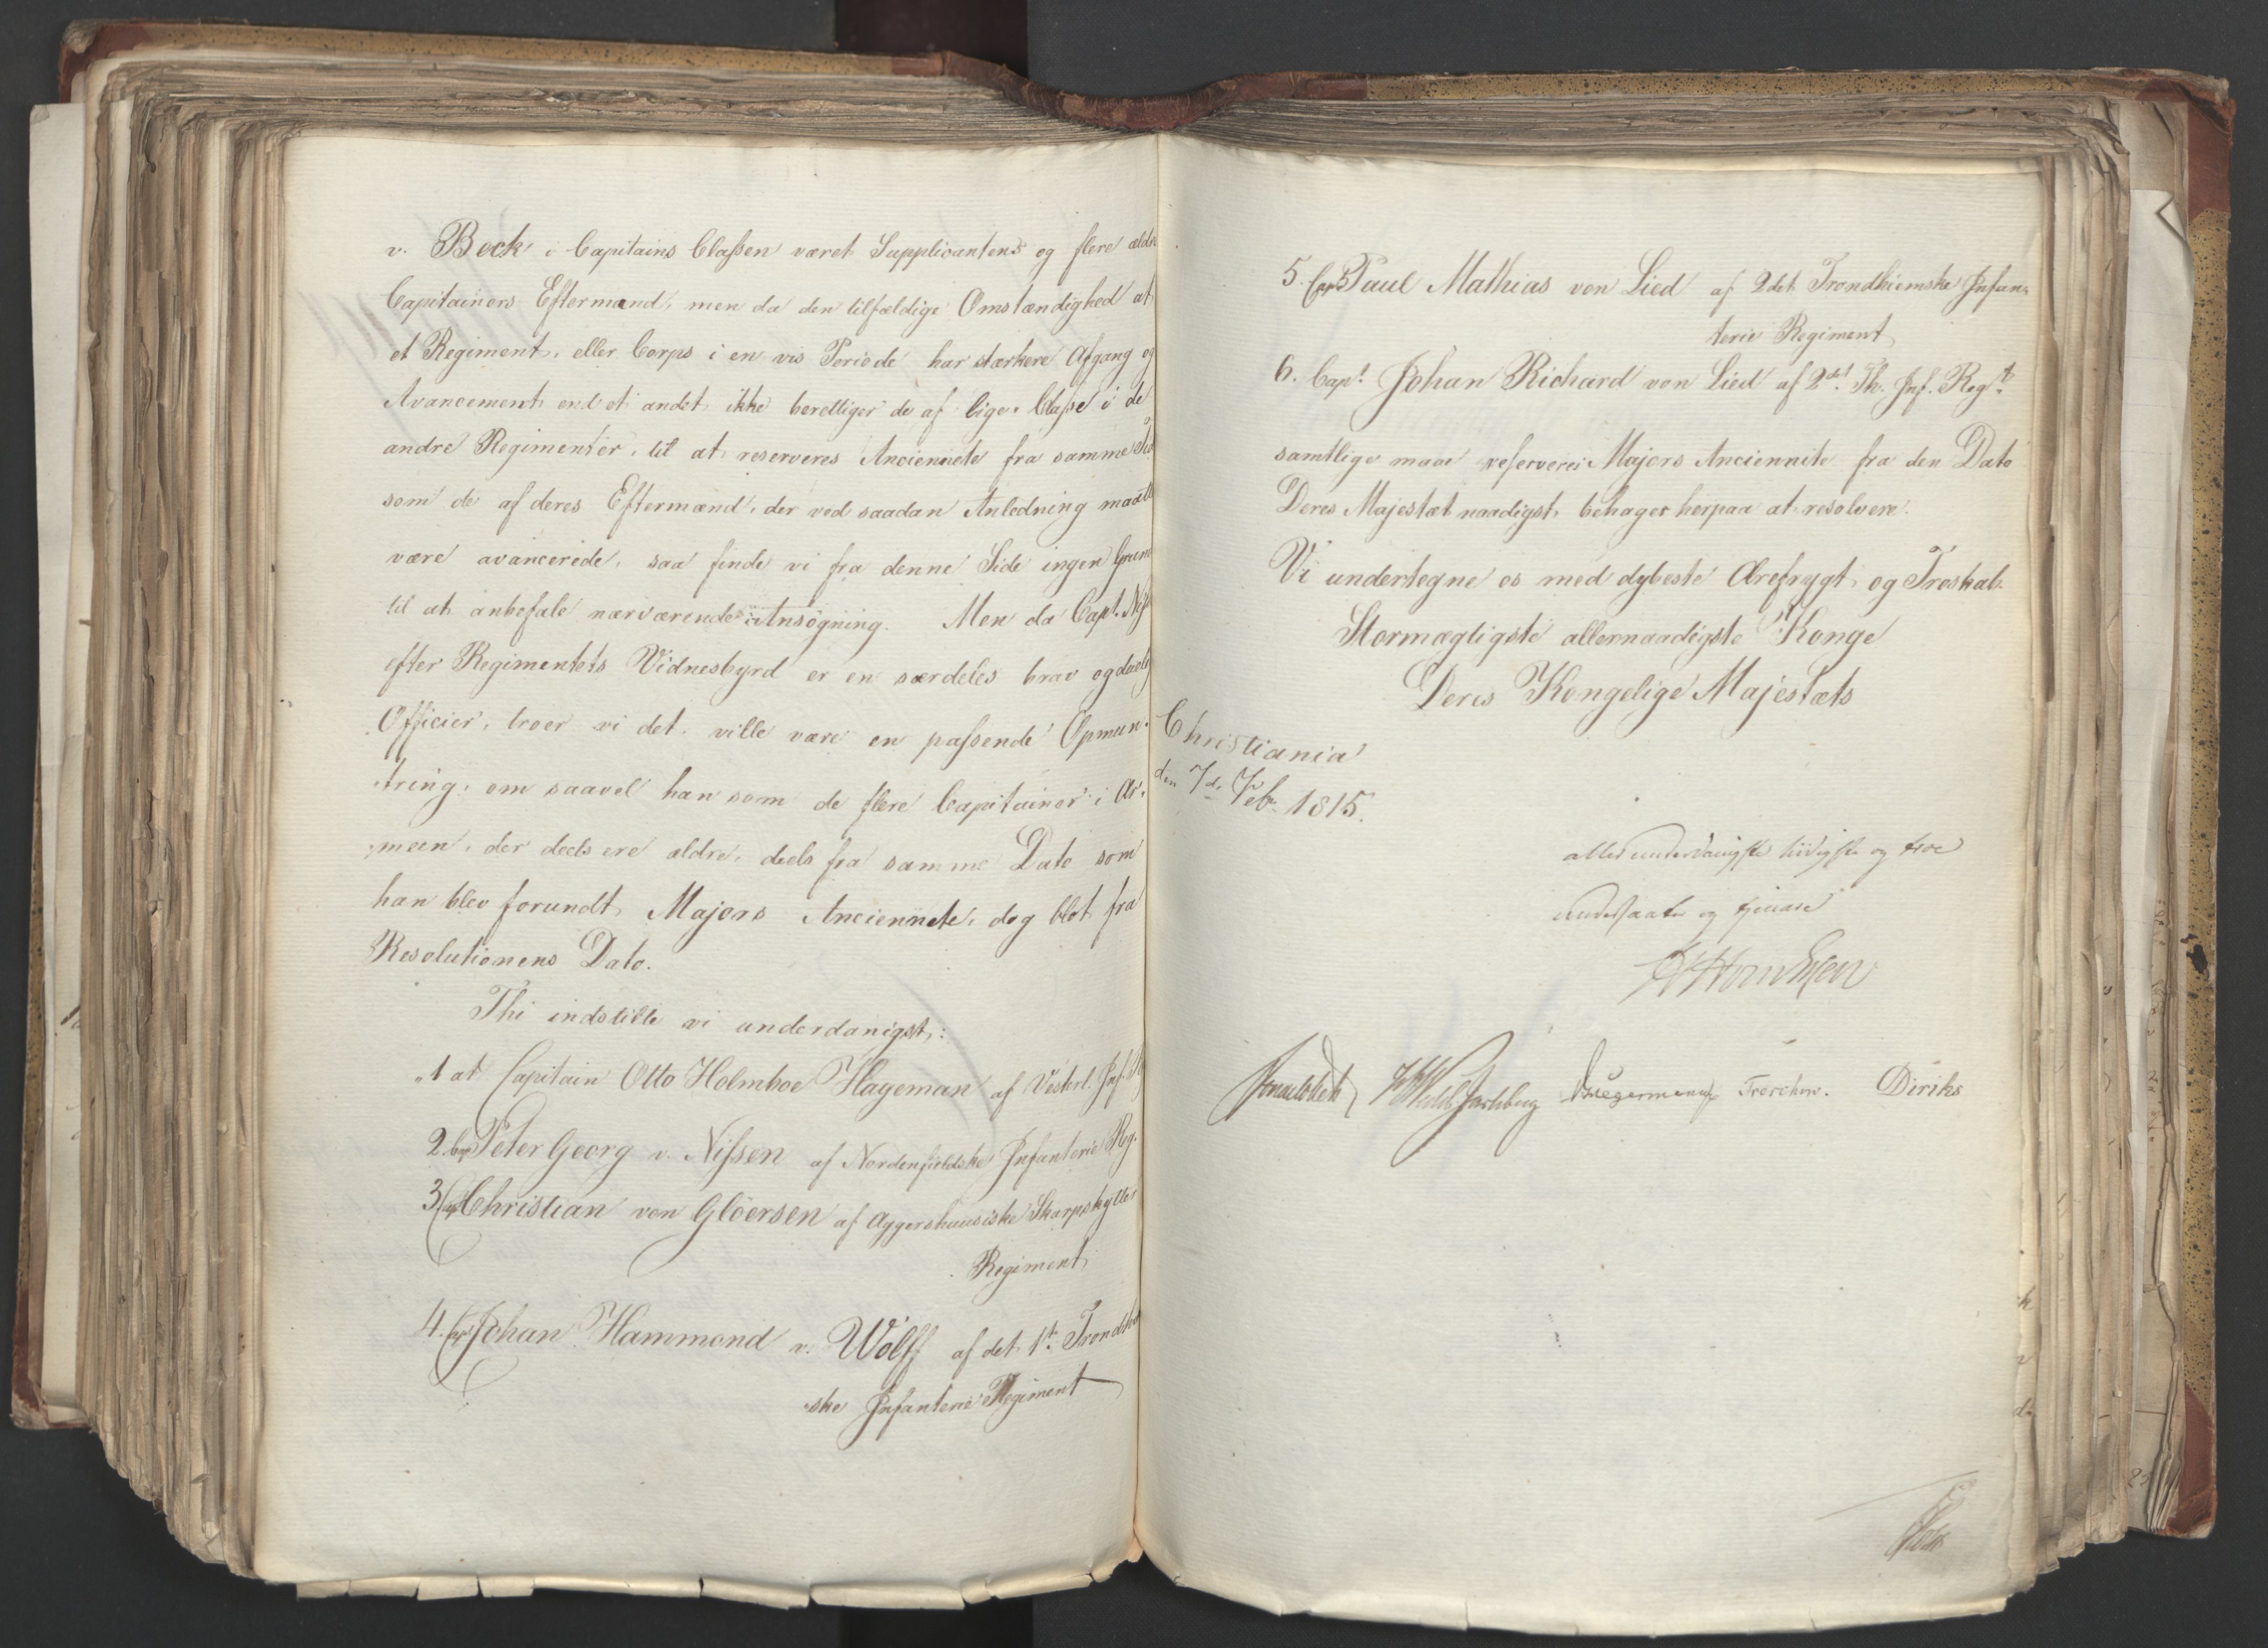 v. Bock i Capitains Classen været Supplicantens og flere ældre
Capitainers Eftermænd, men da den tilfældige Omstændighed at
et Regiment, eller Corps i en vis Periode har stærkere Afgang og
Avancement end et andet, ikke berettiger de af lige Classe i de
andre Regimenter, til at reserveres Anciennete fra samme Tid
som de af deres Eftermænd, der ved saadan Anledning maatte
være avancerede, saa finde vi fra denne Side ingen Grund
til at anbefale nærværende Ansøgning. Men da Capt. Niss
efter Regimentets Vidnesbyrd er en særdeles brav og duelig
Officier, troer vi det ville være en passende Opmun-
tring, om saavel han som de flere Capitainer i Ar-
meen, der deels ere ældre, deels fra samme Dato som
han blev forundt Majors Anciennete, dog blot fra
Resolutionens Dato.
Thi indstille vi underdanigst:
1 at Capitain Otto Holmboe Hageman af Vesterl. Inf. R
2. Cap Peter Georg v. Nissen af Nordenfieldske Infanterie Reg.
3 Cap Christian von Glöersen af Aggershuusiske Skarpskytter
Regiment
4. Cap Johan Hammond v. Wolff af det 1ste Trondhiem
ske Infanterie Regiment
5. Cap Paul Mathias von Lied af 2det Trondhiemske Infan-
terie Regiment
6. Capt. Johan Richard von Lied af 2det Th. Inf. Regt.
samtlige maae reserveres Majors Anciennite fra den Dato
Deres Majestæt naadigst behager herpaa at resolvere.
Vi undertegne os med dybeste Ærefrygt og Troskab.
Stormægtigste allernaadigste Konge
Deres Kongelige Majestæts
Christiania
den 7de Feb. 1815.
allerunderdanigste lydigste og troe
undersaatter og tjenare
Hauxhen
Wedel Jarlsberg Krieger Treschow. Diriks